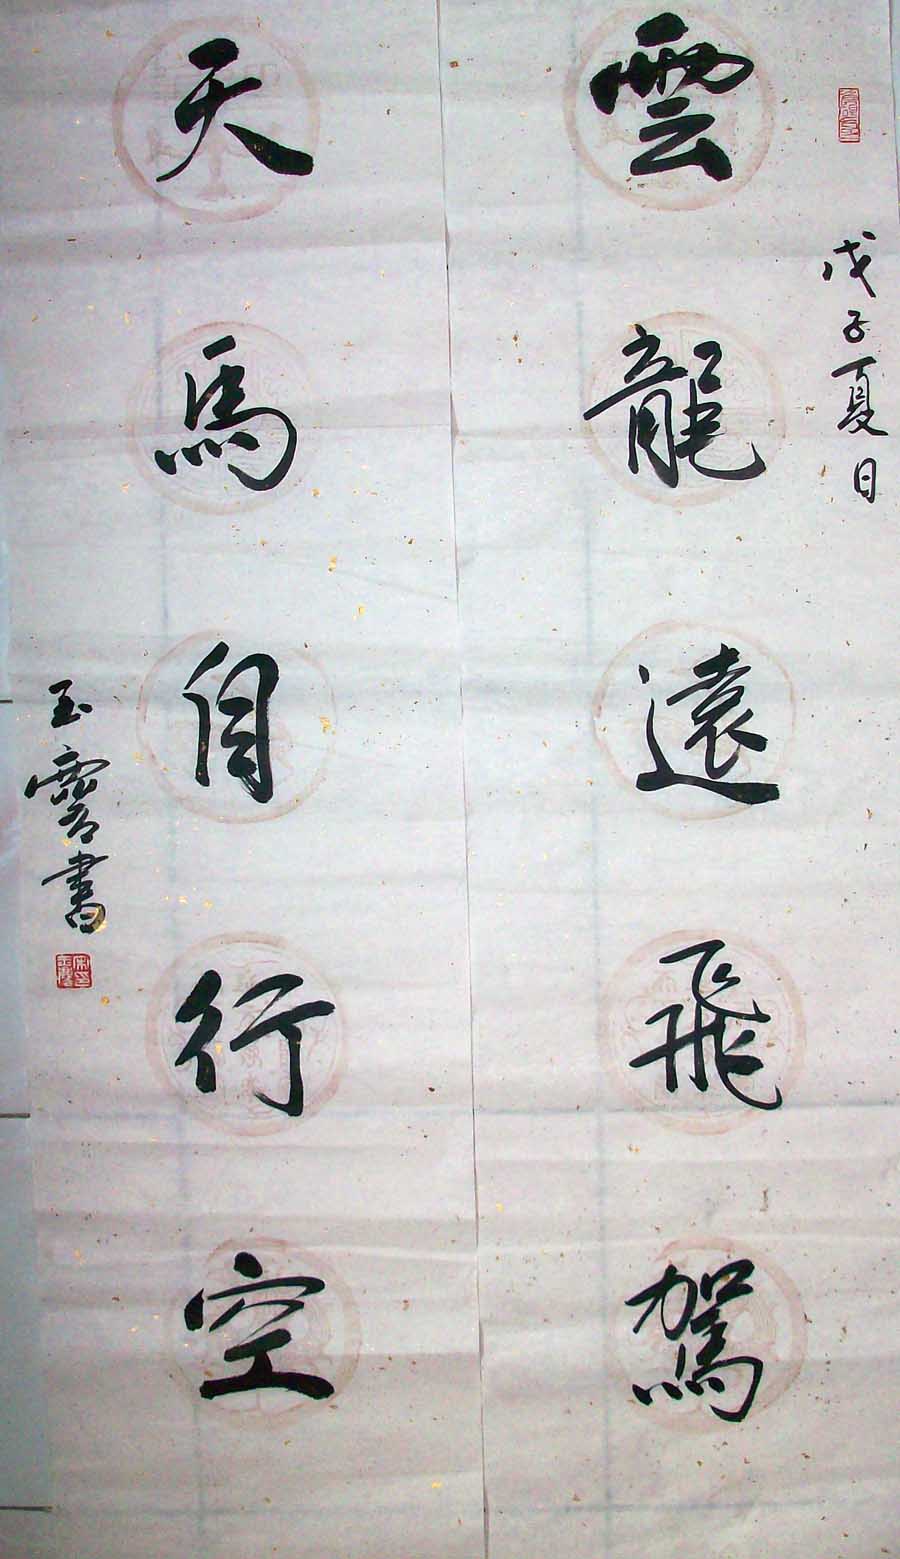 戊子夏日
雲龍遠飛駕
天馬自行空
玉霽書